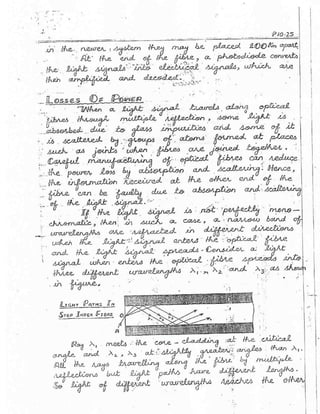 P10-25
in the newer system they may be placed 100 Km apart,
At the end of the fibre, a photodiode converts
the light signals into electrical signals, which are
then amplified and decoded.
LOSSES OF POWER
When a light signal travels along optical
fibres through multiple reflection, some light is
absorbed due to glass impurities and some of it
is scattered by groups of atoms formed at places
such as joints when fibres are joined together.
Careful manufacturing of optical fibres can reduce
the power loss by absorption and scattering. Hence,
the information received at the other end of the
fibre can be faulty due to absorption and scattering
of the light signal.
If the light signal is not perfectly mono-
chromatic, then in such a case, a narrow band of
wavelengths are refracted in different directions
when the light signal enters the optical fibre
and the light signal spreads. Consider a light
signal when enters the optical fibre spreads into
three different wavelengths λ₁, λ₂ and λ₃ as shown
in figure.
LIGHT PATHS IN
STEP INDEX FIBRE
Ray λ₁ meets the core-cladding at the critical
angle and λ₂, λ₃ at slightly greater angles than λ₁.
All the rays travelling along the fibre by multiple
reflections but light paths have different lengths.
So light of different wavelengths reaches the other